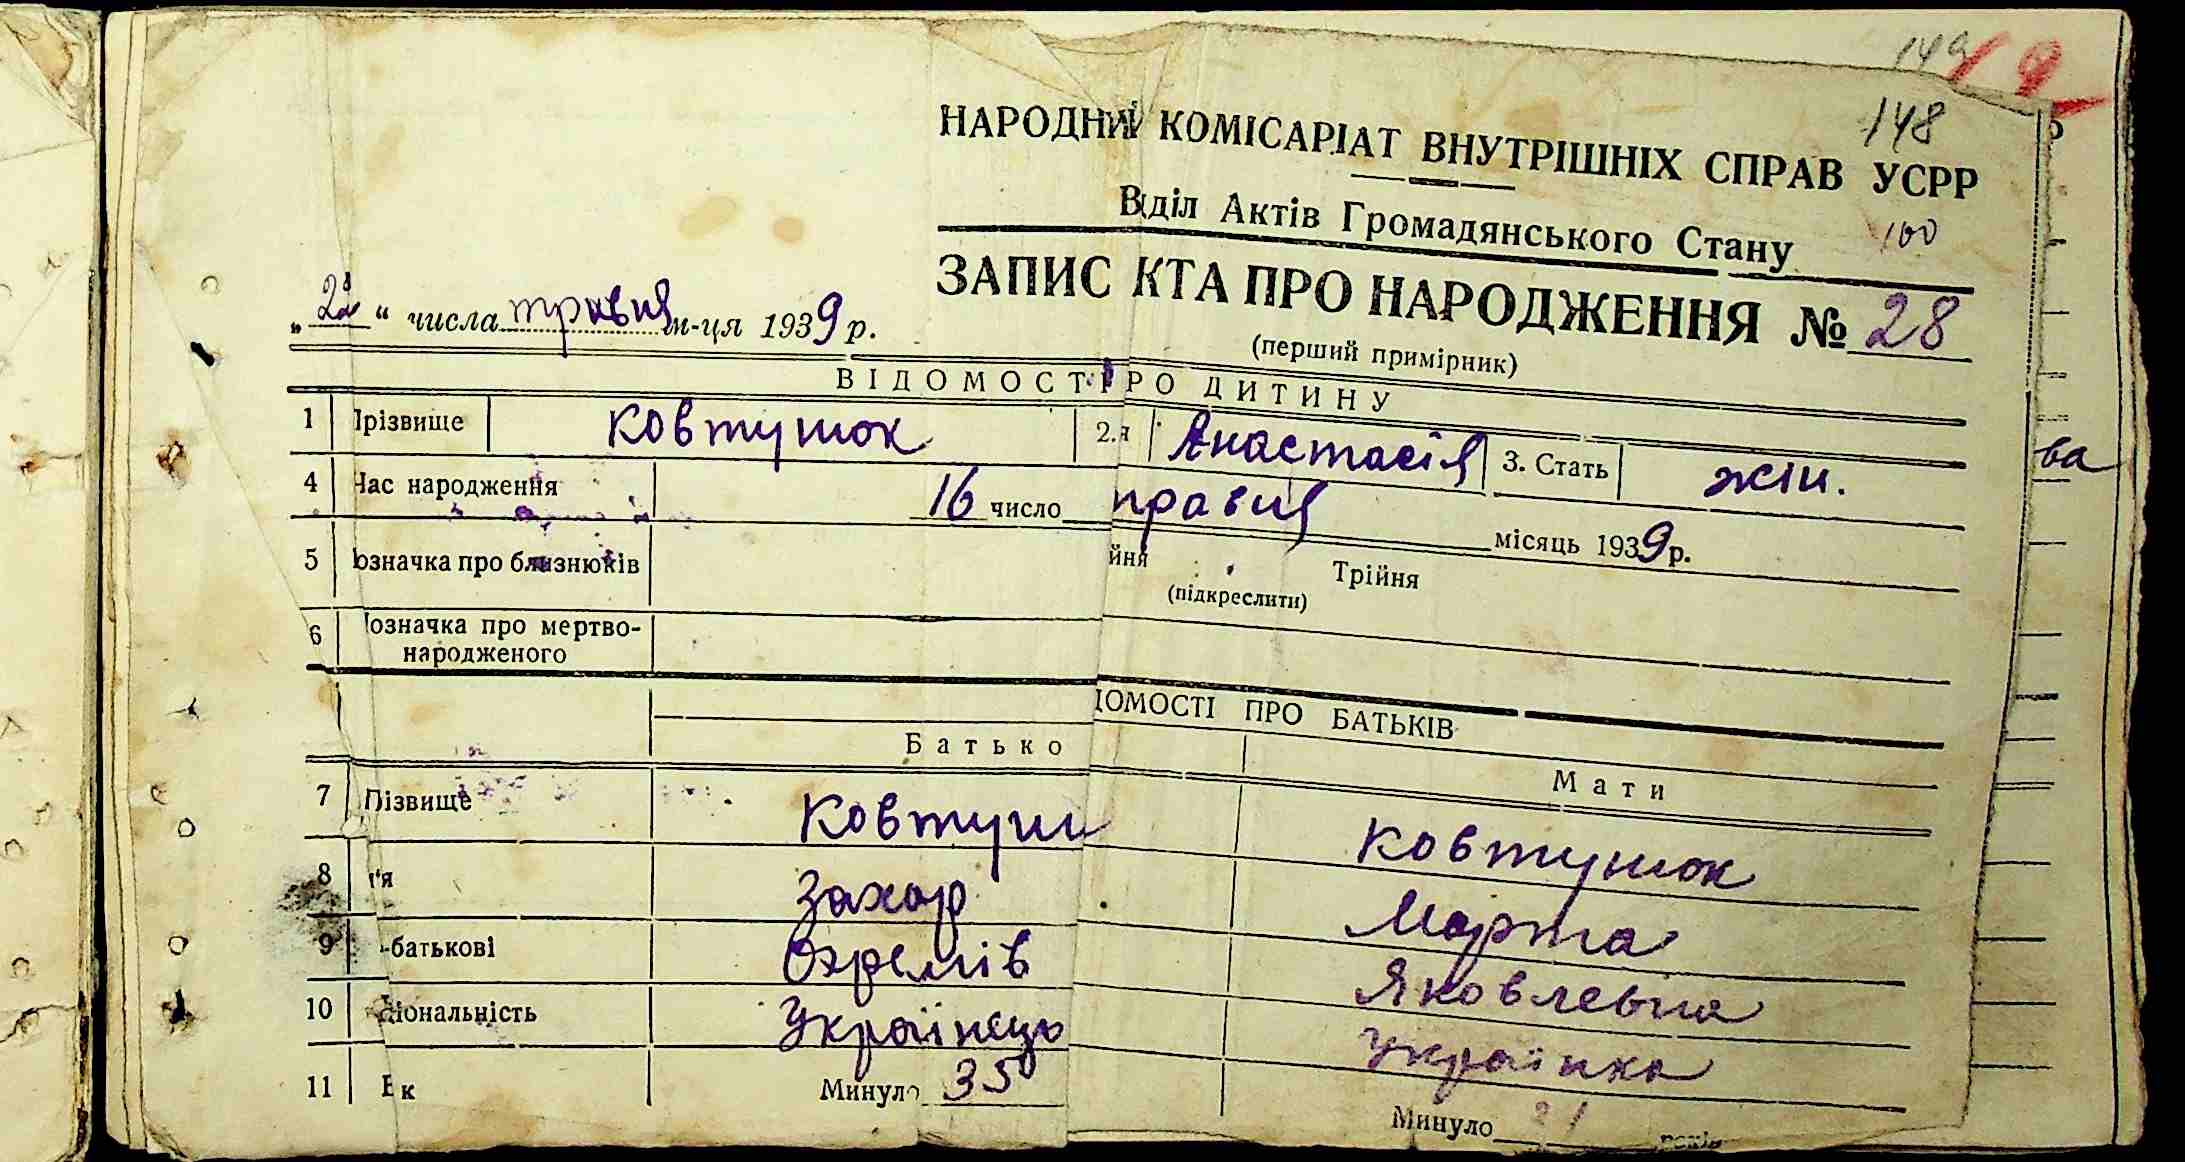 149 9
148
НАРОДНИЙ КОМІСАРІАТ ВНУТРІШНІХ СПРАВ УСРР
Відділ Актів Громадянського Стану
100
ЗАПИС КТА ПРО НАРОДЖЕННЯ № 28
„ “ числа травня м-ця 1939 р.
(перший примірник)
ВІДОМОСТ РО ДИТИНУ
1 Прізвище Ковтунюк 2. я Анастасія 3. Стать жін.
ва
4 Час народження 16 число травня місяць 1939 р.
5 означка про близнюків йня Трійня
(підкреслити)
6 означка про мертво-
народженого
ДОМОСТІ ПРО БАТЬКІВ
Батько Мати
7 Пізвище Ковтун Ковтунюк
8 м'я Захар Марта
9 -батькові Охремів Яковлевна
10 ціональність Українець Українка
11 В к Минуло 35 Минуло 31 років